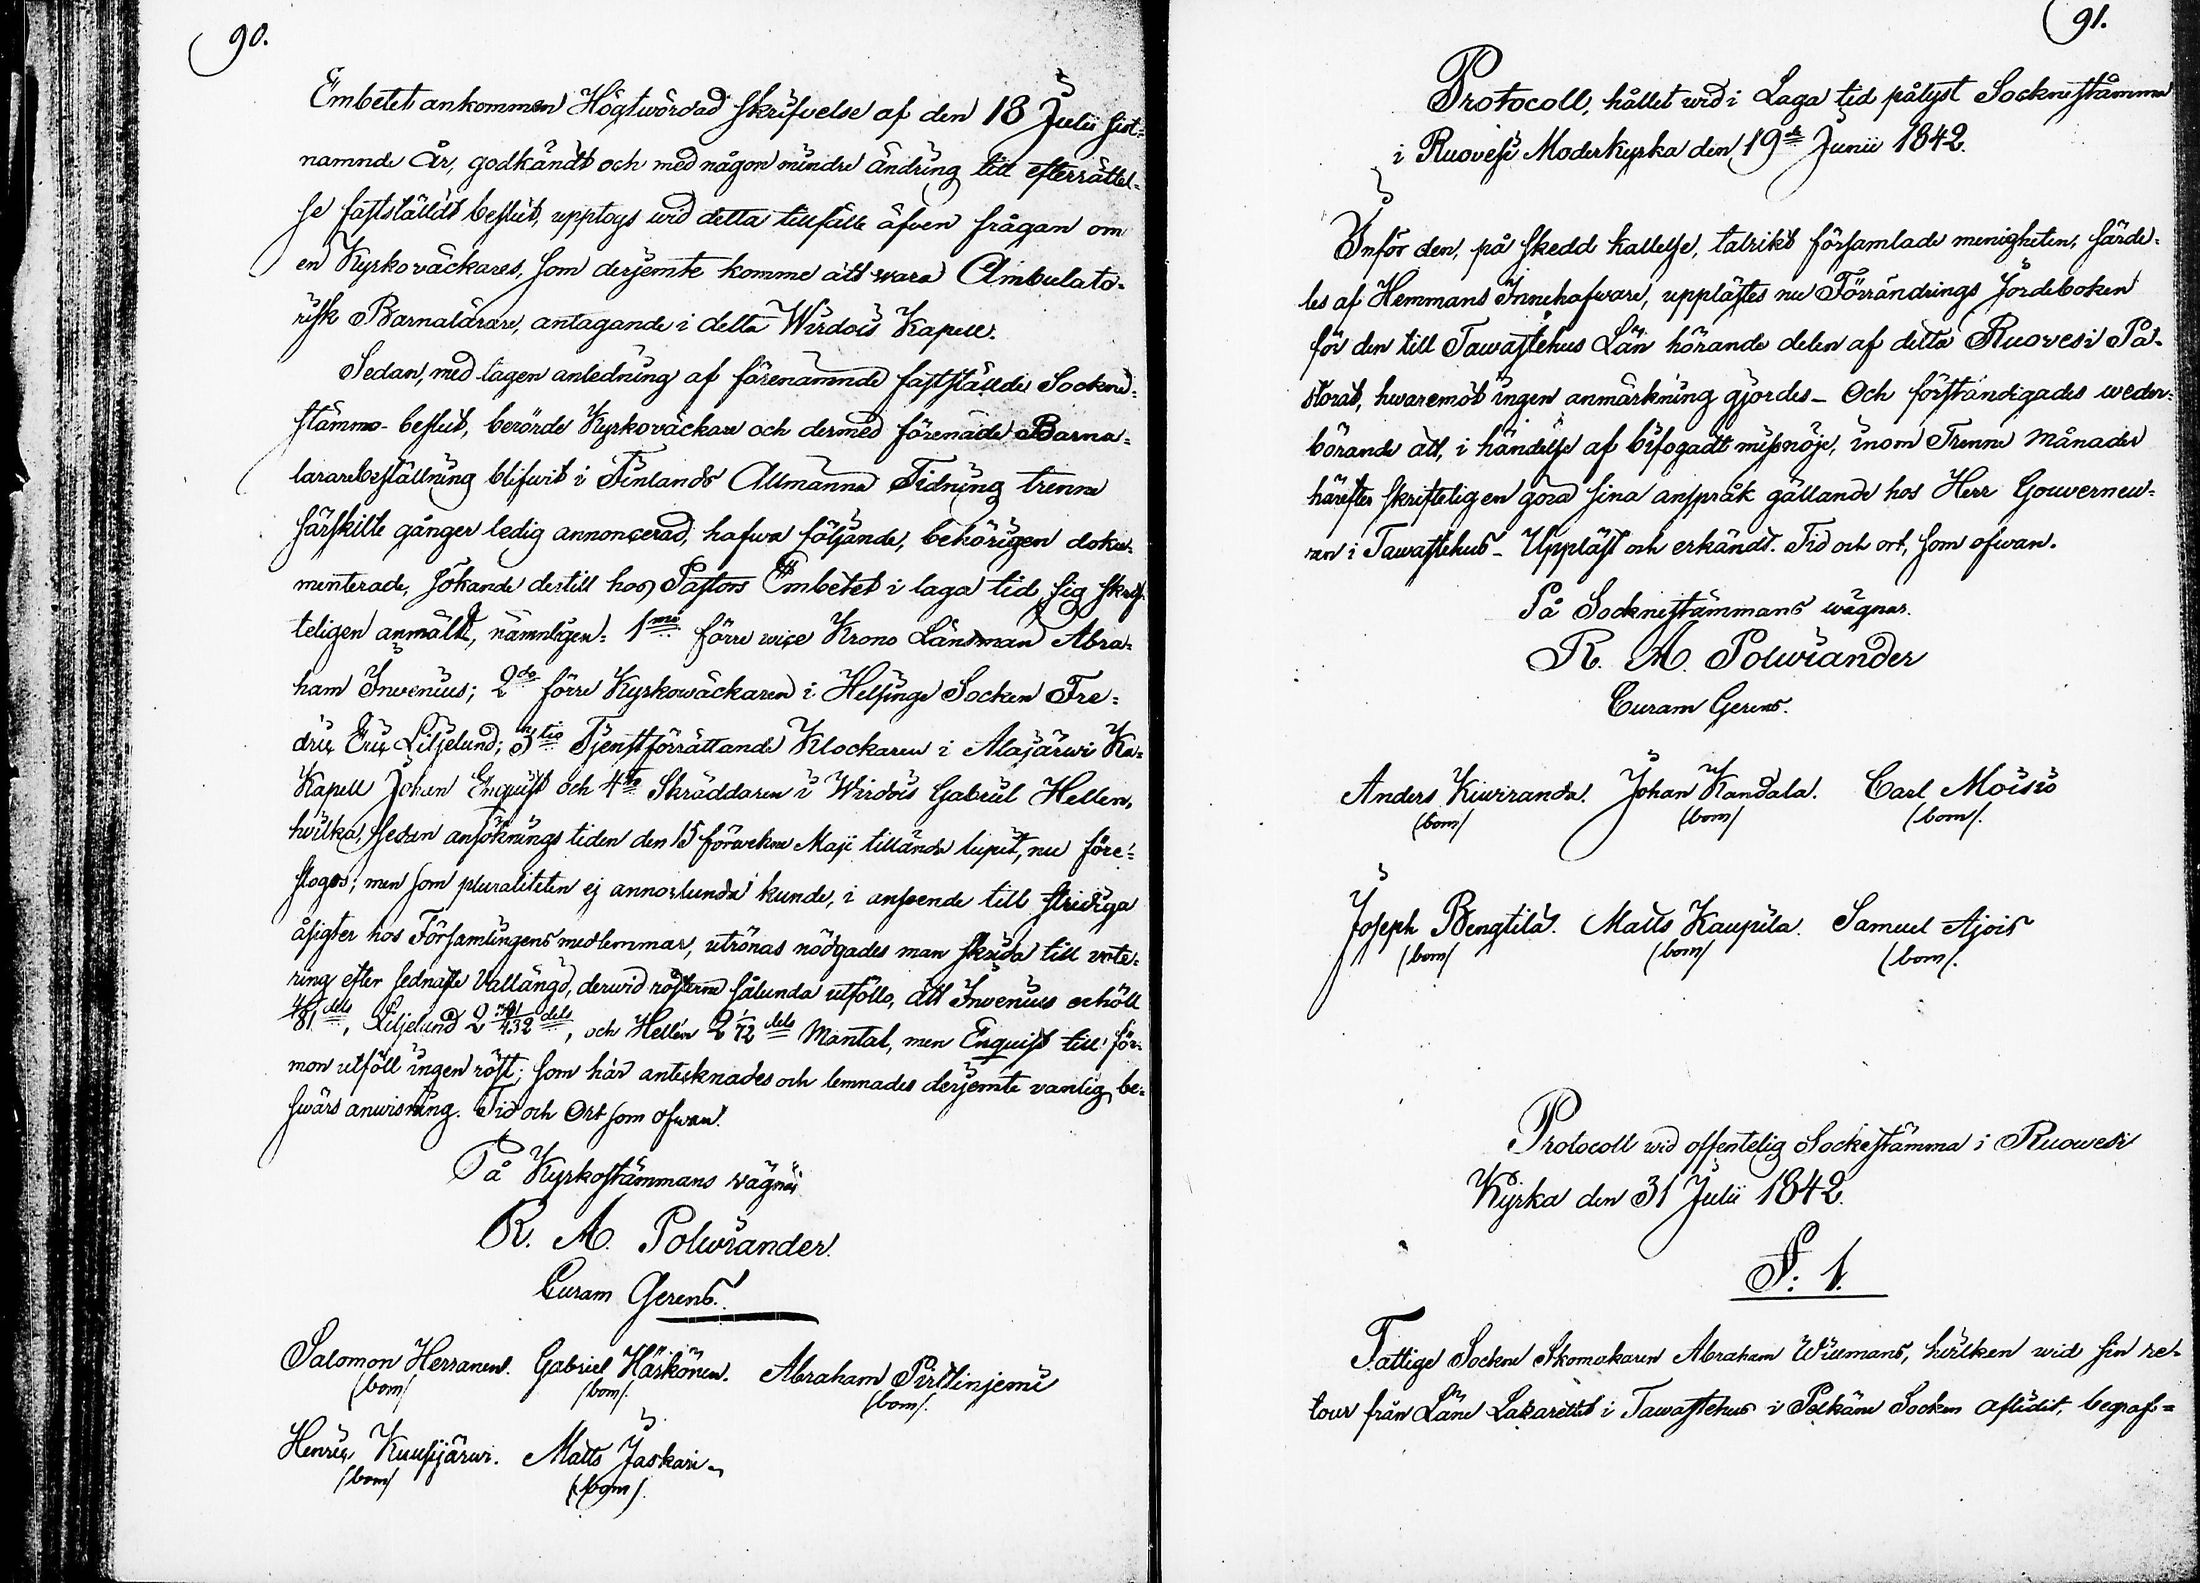 90.
Embetet ankommen Högtwördad skrifvelse af den 18 Julii sist-
namnde År, godkändt och med någon mindre ändring till efterrättel-
se fastställdt beslut, upptogs wid detta tillfälle äfven frågan om
en Kyrkoväckares, som derjemte komme att wara Ambulato-
risk Barnalärare, antagande i detta Wirdois Kapell.
Sedan, med tagen anledning af förenamnde fastställde Sockne-
stämmo-beslut, berörde Kyrkoväckare och dermed förenade Barna-
lararebeställning blifwit i Finlands Allmänna Tidning trenne
särskilte gånger ledig annoncerad, hafwa följande, behörigen doku-
menterade, sökande dertill hos Pastors Embetet i laga tid sig skrif-
teligen anmält, nämnligen: 1mo förre wice Krono Länsman Abra-
ham Invenius; 2do förre Kyrkowäckaren i Helsinge Socken Fre-
dric Eric Liljelund; 3tio Tjenstförrättande Klockaren i Alajärwi Ka-
Kapell Johan Enquist och 4to Skräddaren i Wirdois Gabriel Hellen,
hvilka, sedan ansöknings tiden den 15 förwekne Maji tilländа lupit, nu före-
slogos; men som pluraliteten ej annorlunda kunde, i anseende till stridiga
åsigter hos Församlingens medlemmar, utrönas nödgades man skrida till vote-
ring efter sednaste Vallängd, derwid rösterne sålunda utföllo, att Invenius erhöll
81 dels, Liljelund 2 /432 dels, och Hellén 2 1/72 dels Mantal, men Enquist till för-
mon utföll ingen röst; som här antecknades och lemnades derjemte vanlig be-
swärs anwisning. Tid och Ort som ofwan.
På Kyrkostämmans wägnar
R. A. Polwiander.
Curam Gerens.
Salomon Herranen. Gabriel Härkönen. Abraham Pirttinjemi
(bom) (bom). (bom).
Henric Kuusijärwi. Matts Jaskari
(bom) (bom).
91.
Protocoll, hållet wid i Laga tid pålyst Socknestämma
i Ruovesi Moderkyrka den 19de Junii 1842.
Inför den, på skedd kallelse, talrikt församlade menigheten, särde-
les af Hemmans Innehafware, upplästes nu Förrändrings Jordeboken
för den till Tawastehus Län hörande delen af detta Ruovesi Pa-
storat, hwaremot ingen anmärkning gjordes – Och förständigades weder-
börande att, i händelse af befogadt missnöje, inom Trenne Månader
härefter skrifteligen göra sina anspråk gällande hos Herr Gouverneu-
ren i Tawastehus – Uppläst och erkändt. Tid och ort, som ofwan.
På Socknestämmans wägnar.
R. A. Polwiander
Curam Gerens.
Anders Kiwiranda. Johan Kandala. Carl Moisio
(bom) (bom) (bom).
Joseph Bengtilä. Matts Kaupila. Samuel Ajois
(bom) (bom) (bom).
Protocoll wid offentelig Sockestämma i Ruowesi
Kyrka den 31 Julii 1842.
§. 1.
Fattige Sockne Skomakaren Abraham Willmans, hvilken wid sin re-
tour från Läne Lazarettet i Tawastehus i Pelkäne Socken aflidit, begraf-